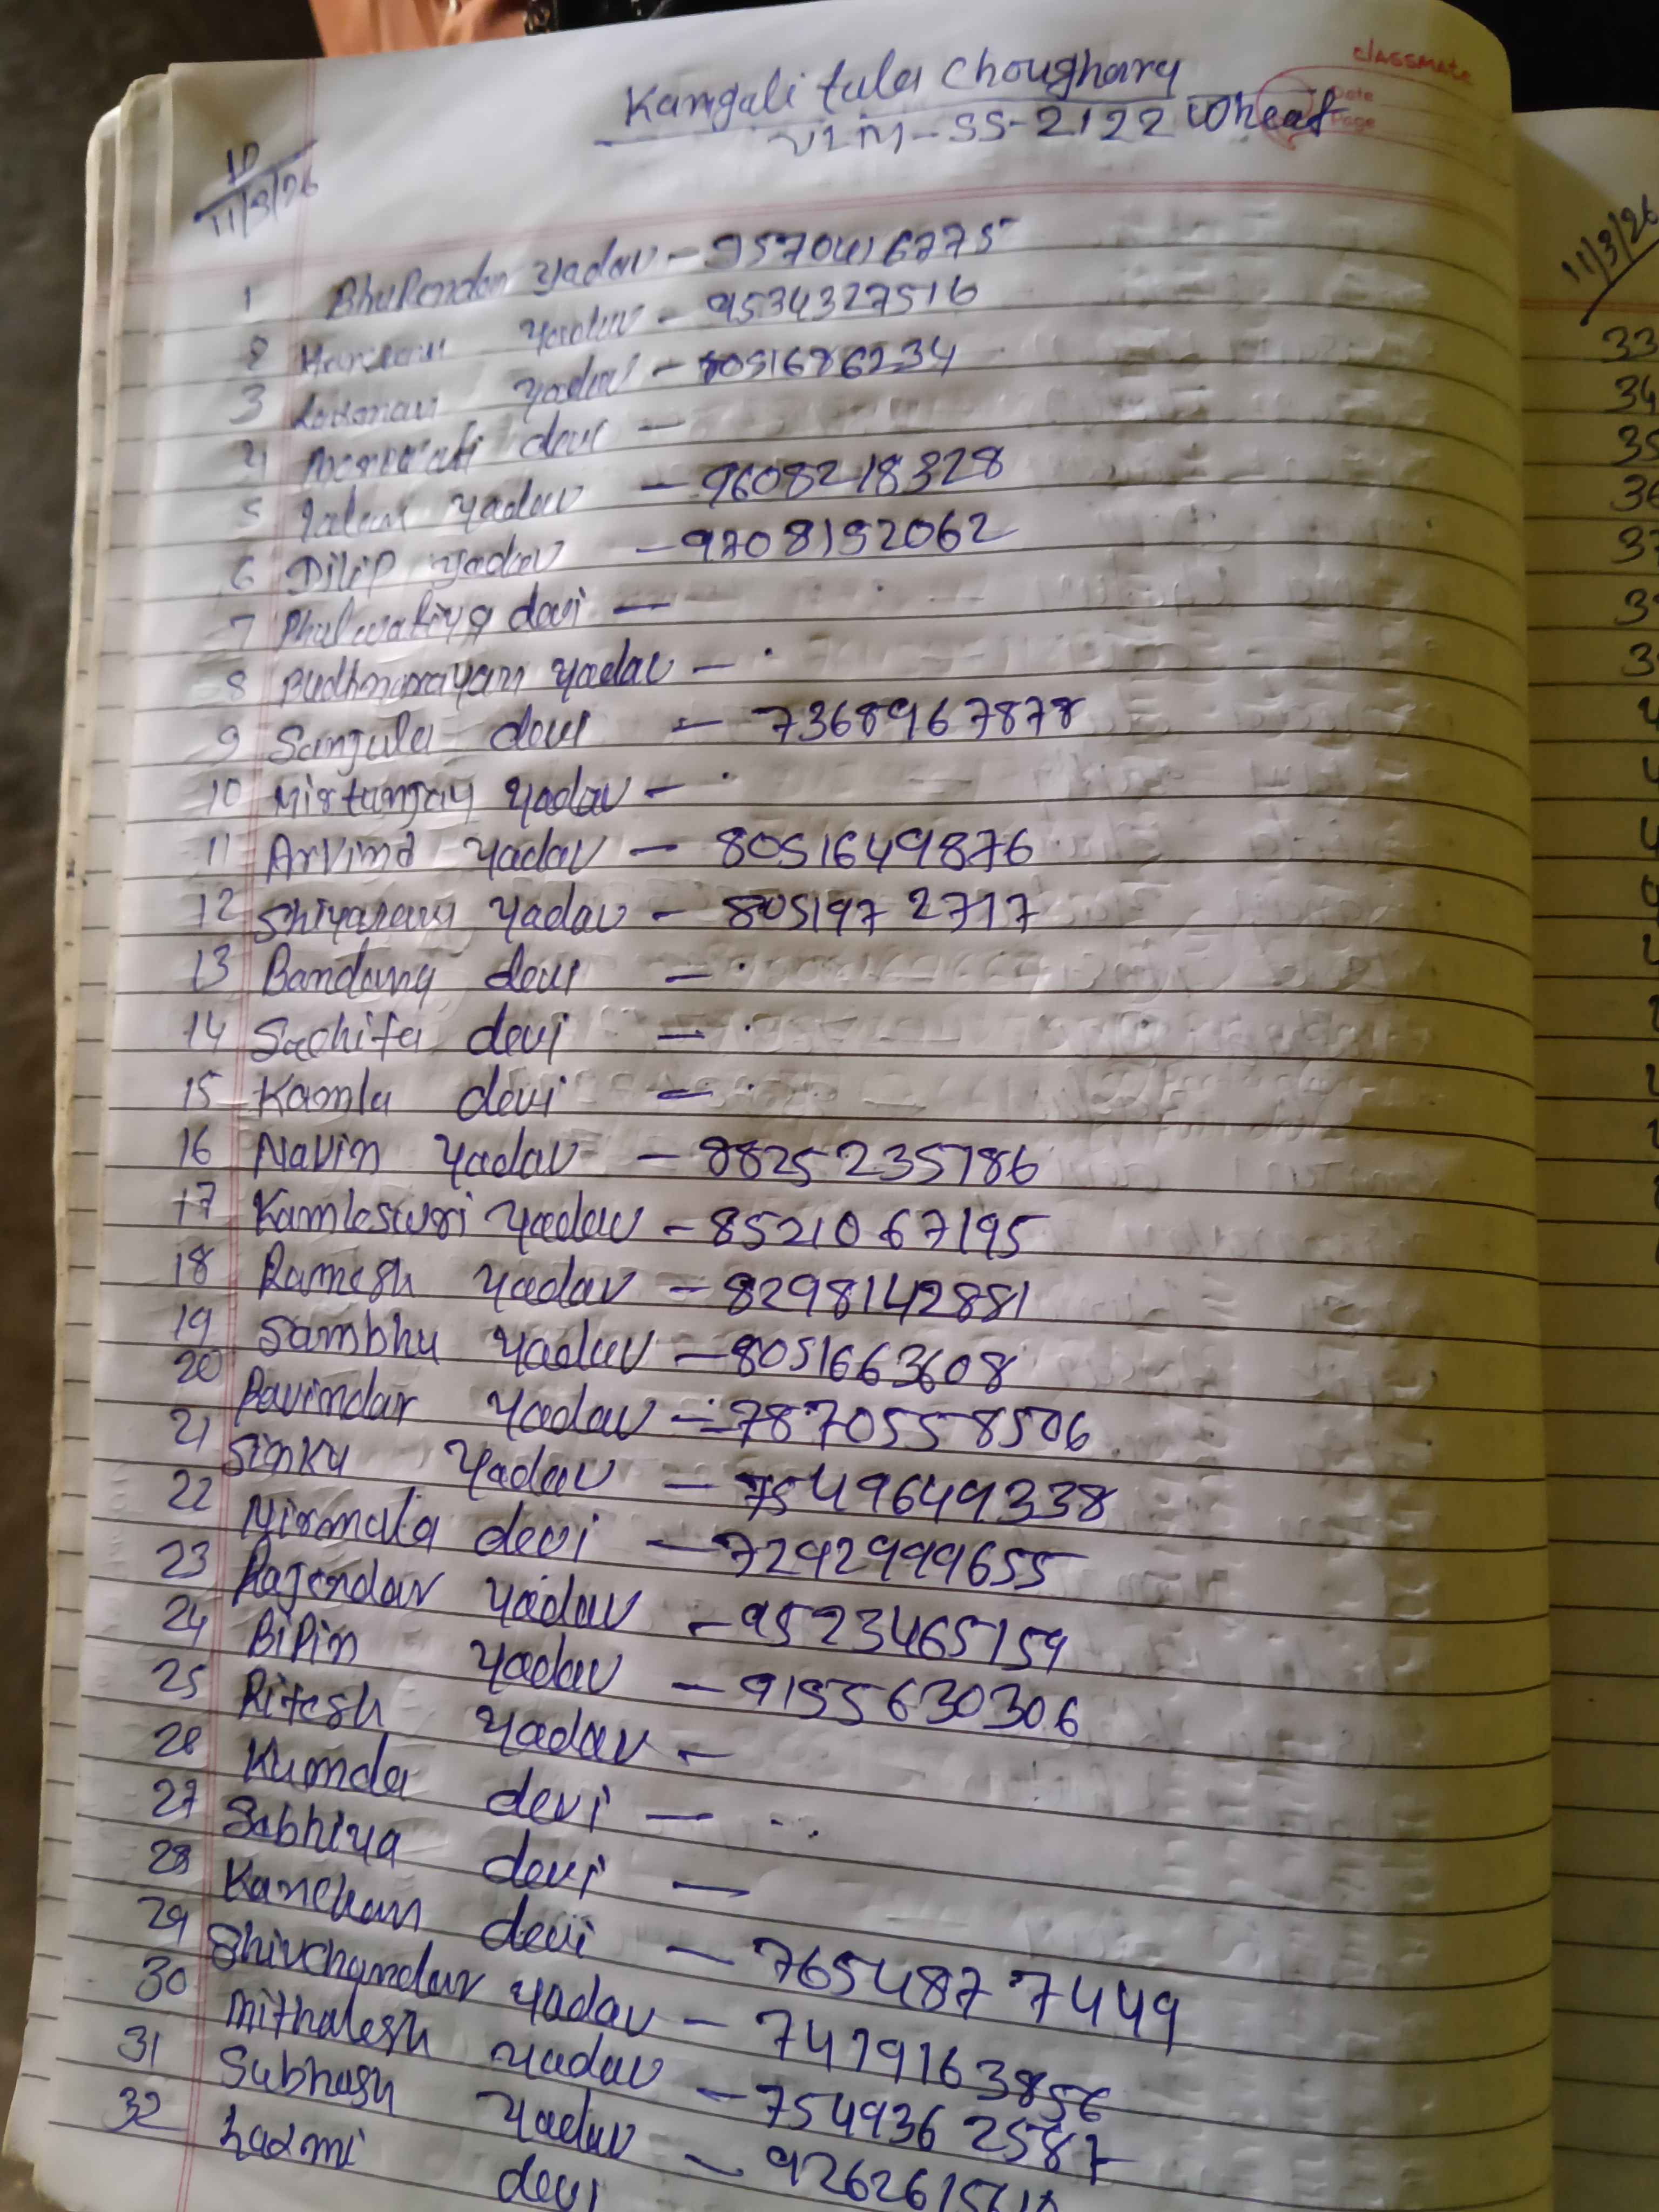 classmate
Date
Page
Kamgali tula Choughary
VLM-SS-2122 Wheat
10
11/3/26
1 Bhupendar Yadav - 9570416775
2 Yadav - 9534327516
3 Yadav - 8051686234
4 devi -
5 Yadav - 9608218328
6 Dilip Yadav - 9708152062
7 Phulwatiya devi -
8 Budhnarayan Yadav -
9 Sanjula devi - 7368967878
10 Mirtunjay Yadav -
11 Arvind Yadav - 8051649876
12 Shivaram Yadav - 8051972717
13 Bandana devi -
14 Sachita devi -
15 Kamla devi -
16 Navin Yadav - 8825235786
17 Kamleswri Yadav - 8521067195
18 Ramesh Yadav - 8298142881
19 Sambhu Yadav - 8051663608
20 Ravindar Yadav - 7870558506
21 Sinku Yadav - 7549649338
22 Nirmala devi - 7292999655
23 Rajendar Yadav - 9523465159
24 Bipin Yadav - 9155630306
25 Ritesh Yadav -
26 Kumda devi -
27 Sabhiya devi -
28 Kanchan devi - 7654877449
29 Shivchandar Yadav - 7479163856
30 Mithalesh Yadav - 7549362587
31 Subhash Yadav -
32 Laxmi devi
11/3/26
33
34
35
36